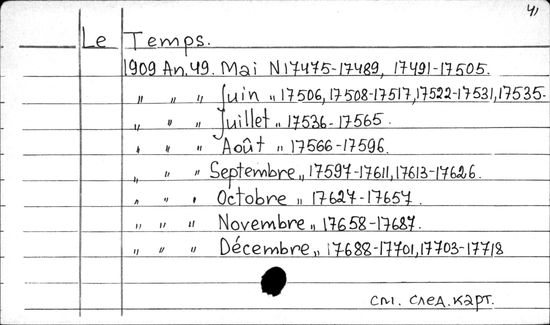 41
Le Temps.
1909 An. 49. Mai N17475-17489, 17491-17505.
" " " Juin " 17506, 17508-17517, 17522-17531, 17535.
" " " Juillet " 17536-17565.
" " " Août " 17566-17596.
" " " Septembre " 17597-17611, 17613-17626.
" " " Octobre " 17627-17657.
" " " Novembre " 17658-17687.
" " " Décembre " 17688-17701, 17703-17718
см. след. карт.